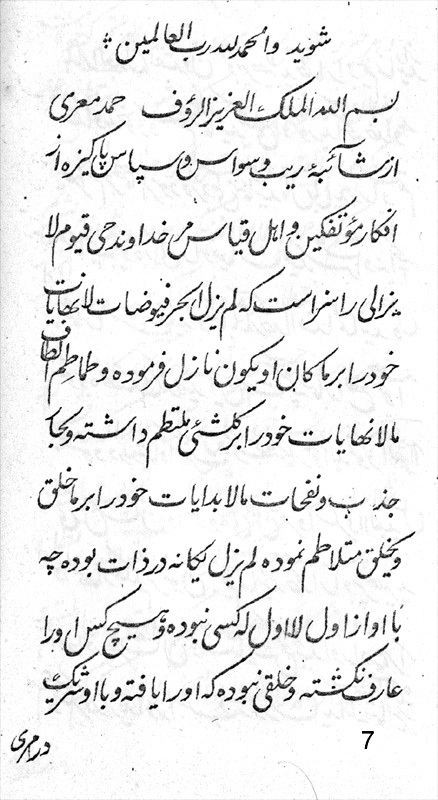 شوید والحمد لله رب العالمین
بسم الله الملک العزیز الرؤف حمد معری
از شائبهٔ ریب و سواس و سپاس پاکیزه از
افکار مؤتفکین و اهل قیاس مر خداوند حی قیوم لا
یزالی را سزاست که لم یزل ابحر فیوضات لانهایات
خود را بر ماکان او یکون نازل فرموده و طماطم الطاف
مالانهایات خود را بر کلشئی ملتطم داشته و بجا
جذب و نفحات مالابدایات خود را بر ما خلق
و یخلق متلاطم نموده لم یزل یگانه در ذات بوده چه
با او از اول لا اول له کسی نبوده و هیچ کس او را
عارف نگشته و خلقی نبوده که او را یافته و با او شریک
در امری
7